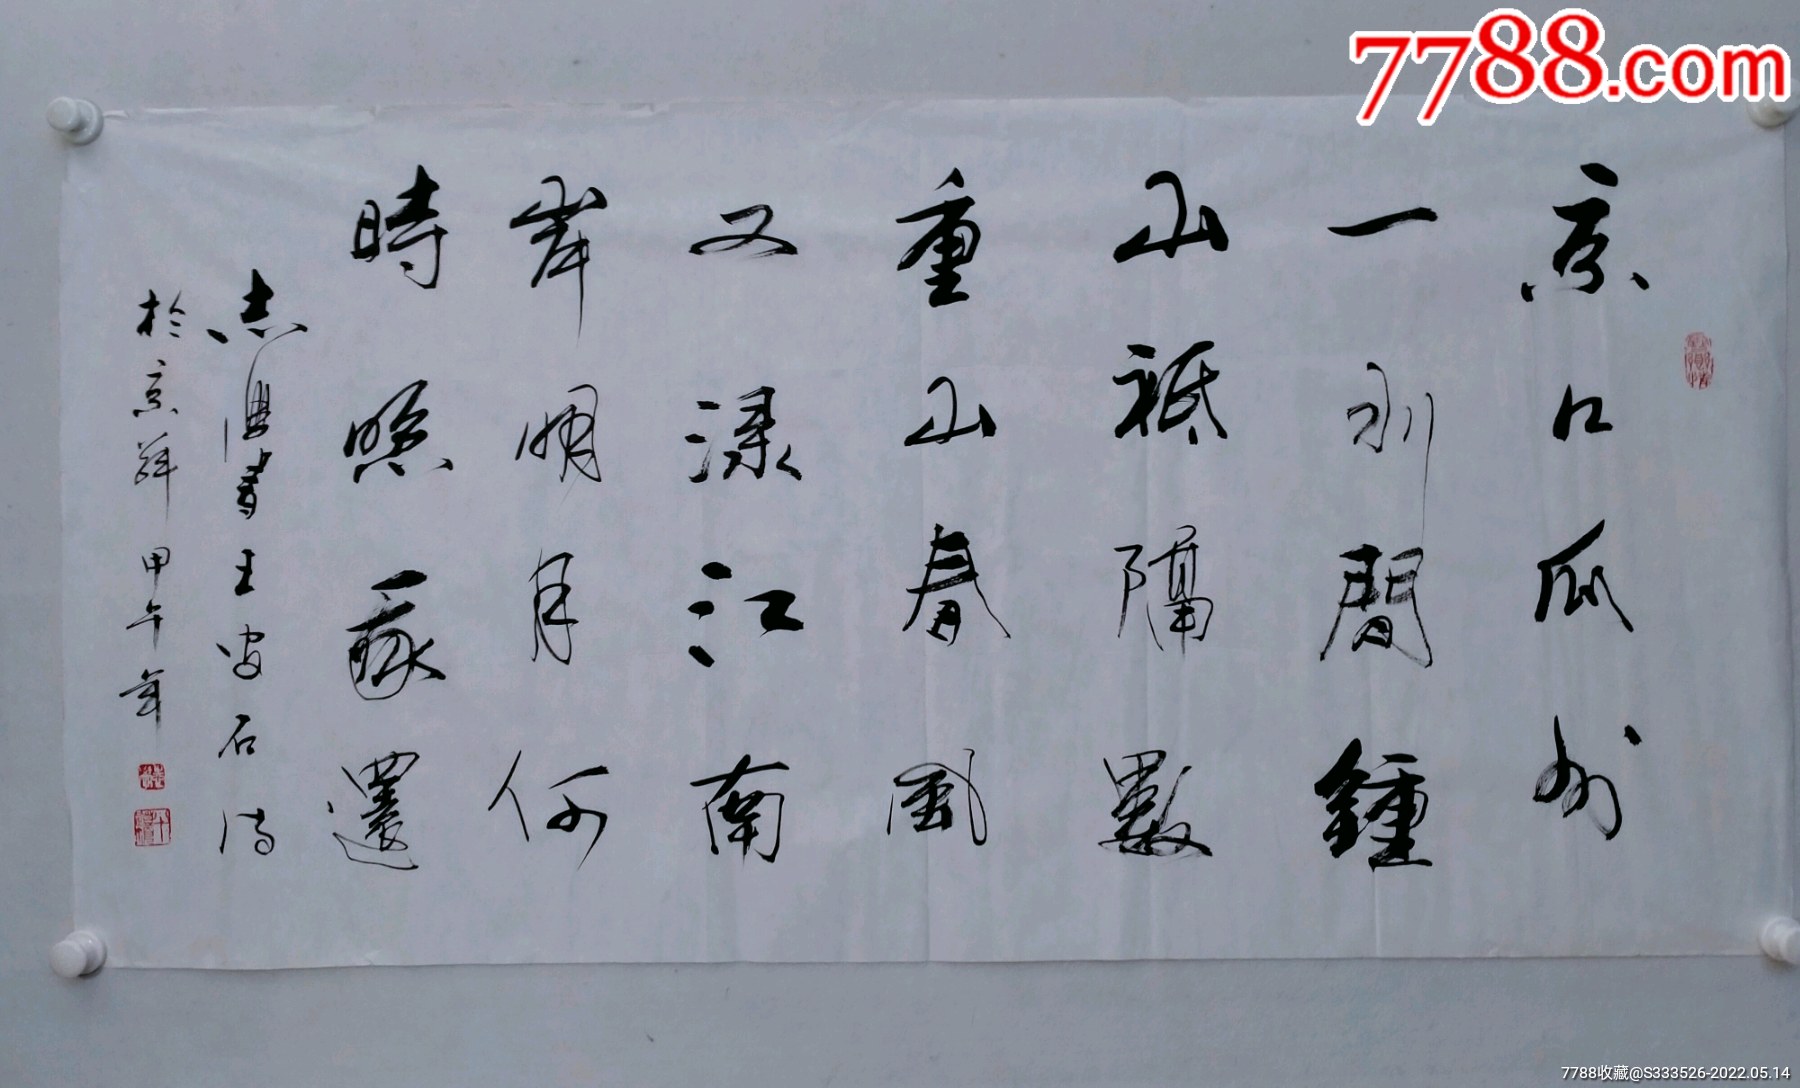 京口瓜州
一水間鍾
山祗隔數
重山春風
又渌江南
岸明月何
時照我還
志書王安石詩
於京 甲午年
7788.com
7788收藏@S333526-2022.05.14